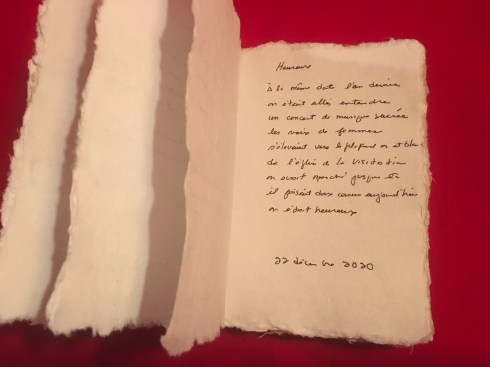 Heureux
à la même date l'an dernier
on était allés entendre
un concert de musique sacrée
les voix de femmes
s'élevaient vers le plafond or et bleu
de l'église de la Visitation
on avait marché jusque là
il faisait doux comme aujourd'hui
on était heureux
22 décembre 2020